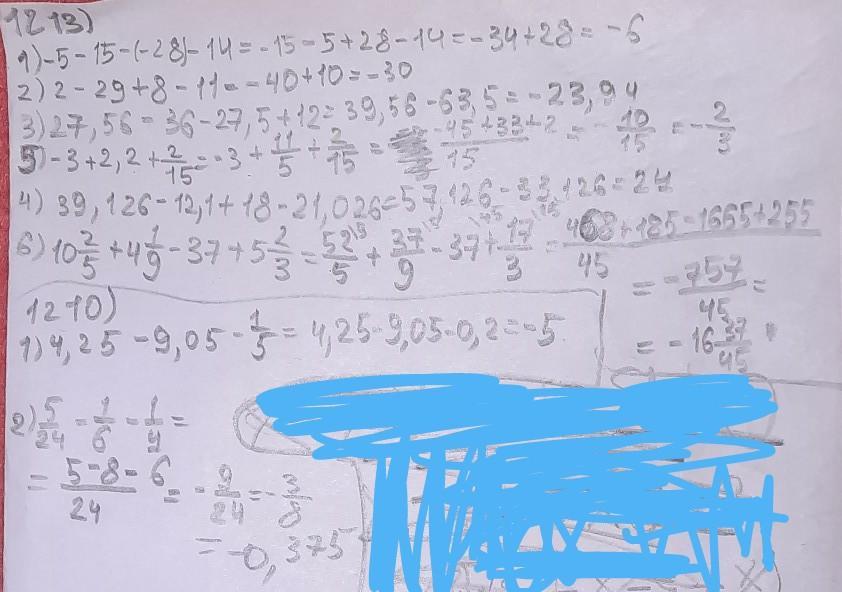 1213)
1) -5-15-(-28)-14=-15-5+28-14=-34+28=-6
2) 2-29+8-11=-40+10=-30
3) 27,56-36-27,5+12=39,56-63,5=-23,94
5) -3+2,2+2/15=-3+11/5+2/15=(-45+33+2)/15=-10/15=-2/3
4) 39,126-12,1+18-21,026=57,126-33,126=24
6) 10 2/5+4 1/9-37+5 2/3=52/5+37/9-37+17/3=(468+185-1665+255)/45
=-757/45=
=-16 37/45
1210)
1) 4,25-9,05-1/5=4,25-9,05-0,2=-5
2) 5/24-1/6-1/4=
=(5-8-6)/24=-9/24=-3/8
=-0,375